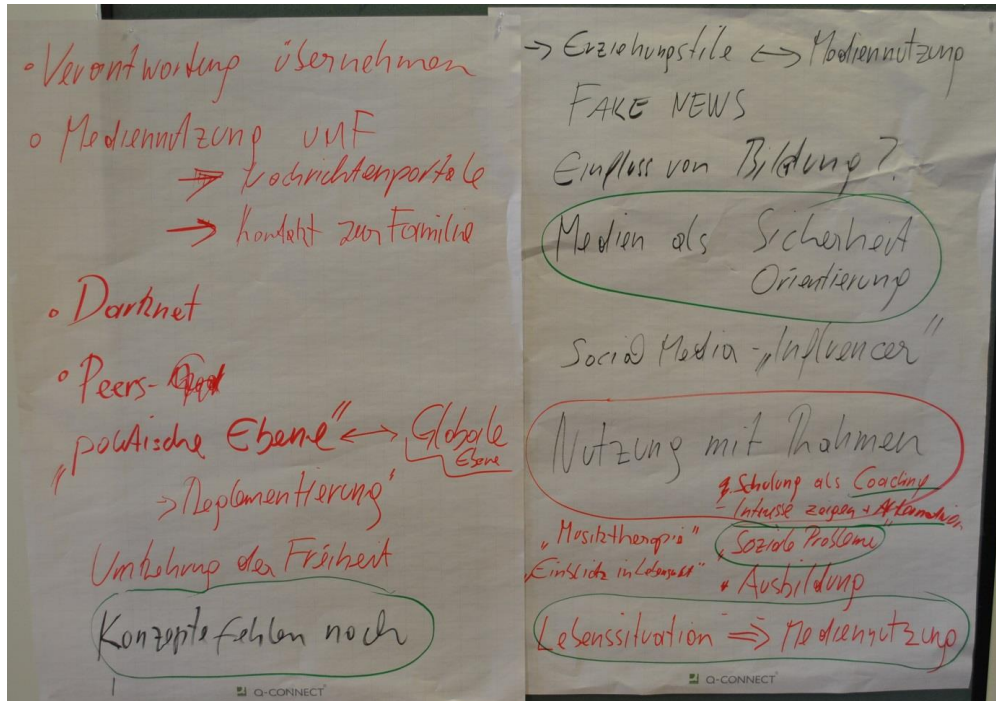 • Verantwortung übernehmen
• Mediennutzung UMF
→ Nachrichtenportale
→ Kontakt zur Familie
• Darknet
• Peers-
„politische Ebene" ↔ Globale
Ebene
→ Reglementierung'
Umkehrung der Freiheit
Konzepte fehlen noch
Q-CONNECT
→ Erziehungstile ↔ Mediennutzung
FAKE NEWS
Einfluss von Bildung?
Medien als Sicherheit
Orientierung
Social Media - „Influencer"
Nutzung mit Rahmen
Schulung als Coaching
- Intresse zeigen +
„Musiktherapie" „Soziale Probleme"
„Einblicke in Lebenswelt"
• Ausbildung
Lebenssituation ⇒ Mediennutzung
Q-CONNECT